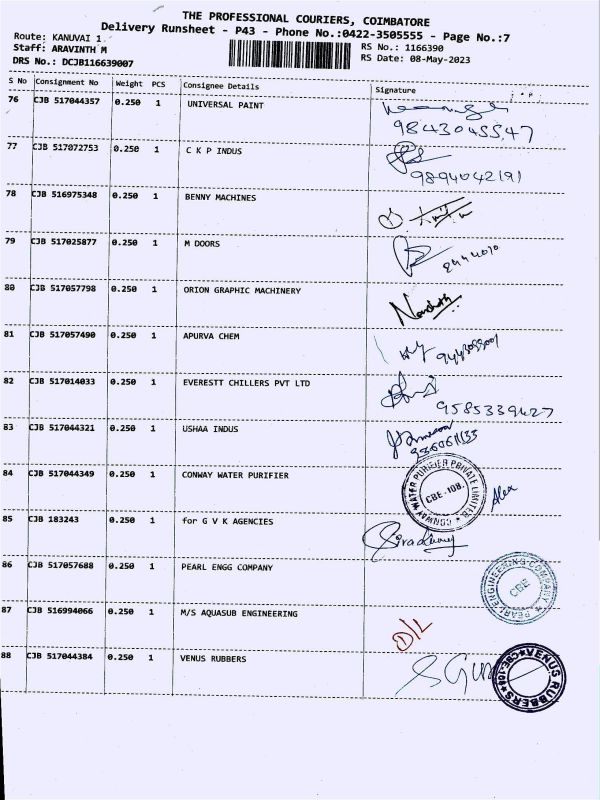 THE PROFESSIONAL COURIERS, COIMBATORE
Delivery Runsheet - P43 - Phone No.:0422-3505555 - Page No.:7
Route: KANUVAI 1
Staff: ARAVINTH M
RS No.: 1166390
DRS No.: DCJB116639007
RS Date: 08-May-2023
S No Consignment No Weight PCS Consignee Details Signature
76 CJB 517044357 0.250 1 UNIVERSAL PAINT
9843045547
77 CJB 517072753 0.250 1 C K P INDUS
9894042191
78 CJB 516975348 0.250 1 BENNY MACHINES
79 CJB 517025877 0.250 1 M DOORS
80 CJB 517057798 0.250 1 ORION GRAPHIC MACHINERY
81 CJB 517057490 0.250 1 APURVA CHEM
82 CJB 517014033 0.250 1 EVERESTT CHILLERS PVT LTD
9585339427
83 CJB 517044321 0.250 1 USHAA INDUS
84 CJB 517044349 0.250 1 CONWAY WATER PURIFIER
CONWAY WATER PURIFIER PRIVATE LIMITED
CBE-108.
Alex
85 CJB 183243 0.250 1 for G V K AGENCIES
86 CJB 517057688 0.250 1 PEARL ENGG COMPANY
PEARL ENGINEERING COMPANY
CBE
87 CJB 516994066 0.250 1 M/S AQUASUB ENGINEERING
D/L
88 CJB 517044384 0.250 1 VENUS RUBBERS
VENUS RUBBERS
CBE-108